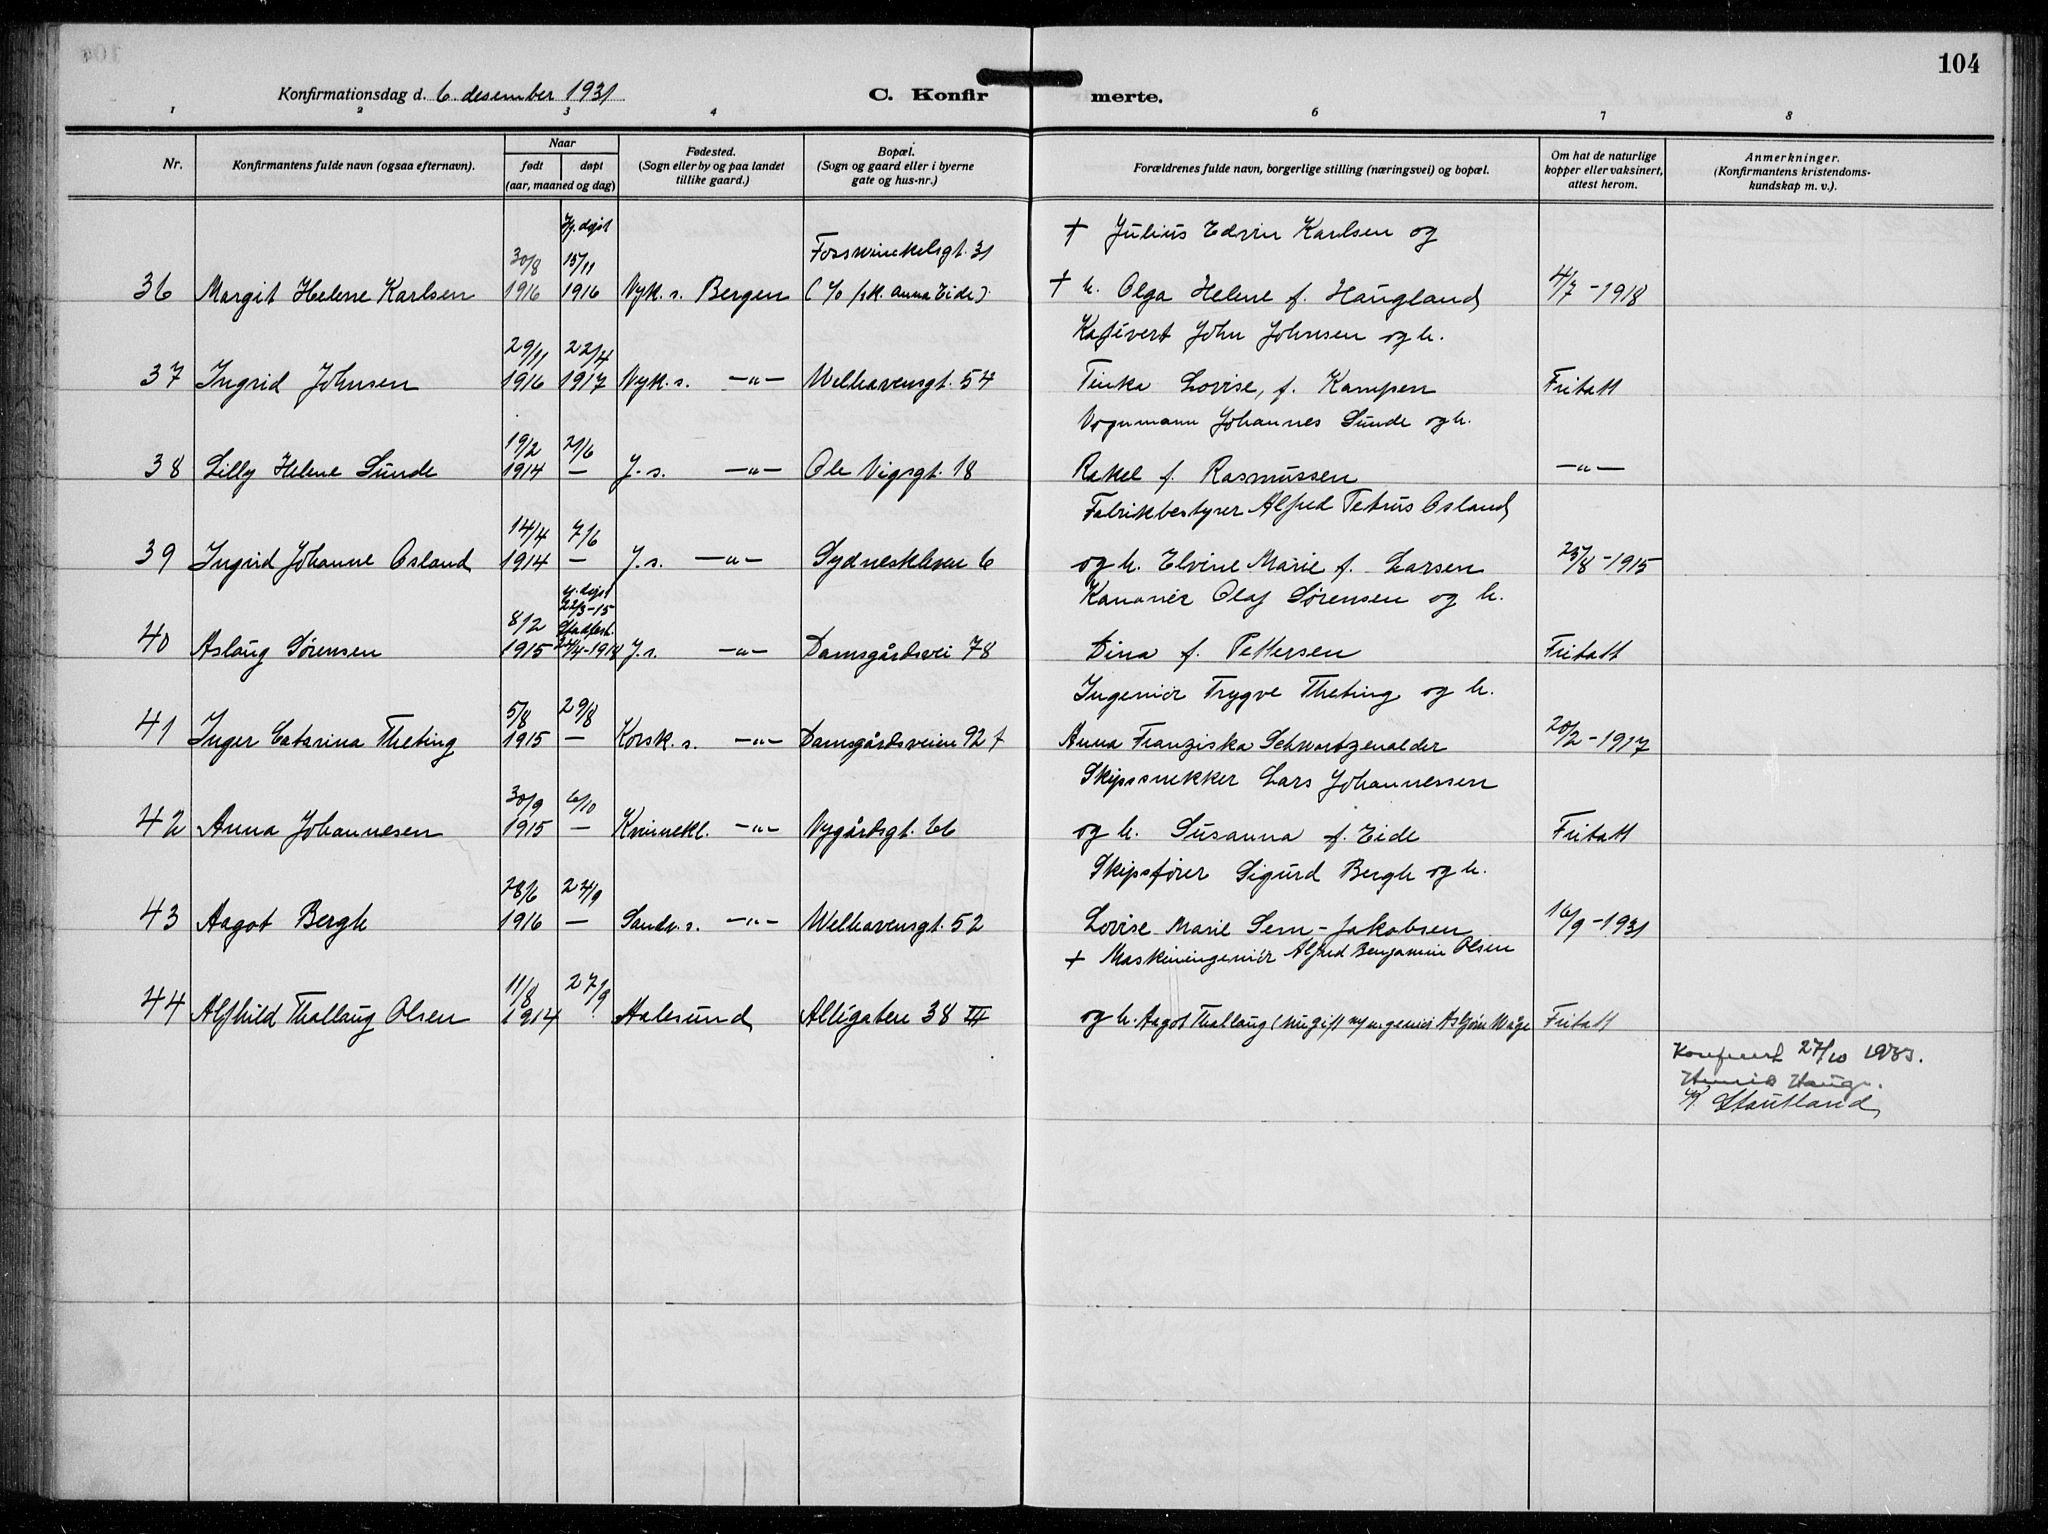 104
Konfirmationsdag d. 6. desember 1931
C. Konfir
merte.
1 2 3 4 6 7 8
Nr.
Konfirmantens fulde navn (ogsaa efternavn).
Naar
født døpt
(aar, maaned og dag)
Fødested.
(Sogn eller by og paa landet
tillike gaard.)
Bopæl.
(Sogn og gaard eller i byerne
gate og hus-nr.)
Forældrenes fulde navn, borgerlige stilling (næringsvei) og bopæl.
Om hat de naturlige
kopper eller vaksinert,
attest herom.
Anmerkninger.
(Konfirmantens kristendoms-
kundskap m. v.).
Hj. døpt
30/8 15/11 Fosswinckelsgt. 31 † Julius Edvin Karlsen og
36 Margit Helene Karlsen 1916 1916 Nyk. s. Bergen (c/o frk. Anna Eide) † h. Olga Helene f. Haugland 4/7 - 1918
29/11 22/4 John Johnsen og h.
37 Ingrid Johnsen 1916 1917 Nyk. s. —"— Welhavensgt. 54 Tinka Lovise, f. Kampen Fritatt
19/2 21/6 Vognmann Johannes Sunde og h.
38 Lilly Helene Sunde 1914 — J. s. —"— Ole Vigsgt. 18 Rakel f. Rasmussen —"—
14/4 7/6 Fabrikbestyrer Alfred Petrus Osland
39 Ingrid Johanne Osland 1914 — J. s. —"— Sydneskleven 6 og h. Elvine Marie f. Larsen 25/8 - 1915
hj. døpt
8/2 22/3-15 Stadfest. Kanonér Olaf Sørensen og h.
40 Aslaug Sørensen 1915 24/4-1918 J. s. —"— Damsgårdsvei 78 Dina f. Pettersen Fritatt
5/8 29/8 Ingeniør Trygve Theting og h.
41 Inger Catarina Theting 1915 — Korsk. s. —"— Damsgårdsveien 92 f Anna Franziska Schwartzenalder 20/2 - 1917
30/9 6/10 Skipssnekker Lars Johannessen
42 Anna Johannesen 1915 — Kvinnekl. —"— Nygårdsgt. 66 og h. Susanna f. Eide Fritatt
28/6 24/9 Skipsfører Sigurd Bergh og h.
43 Aagot Bergh 1916 — Sandv. s. —"— Welhavensgt. 52 Lovise Marie Sem-Jakobsen 16/9 - 1931
11/8 27/9 † Maskiningeniør Alfred Benjamin Olsen
44 Alfhild Thallaug Olsen 1914 Aalesund Alligaten 38 III og h. Aagot Thallaug (nu gift m/ingeniør Asbjørn Wage Fritatt
Konferert 27/10 1983.
Stautland